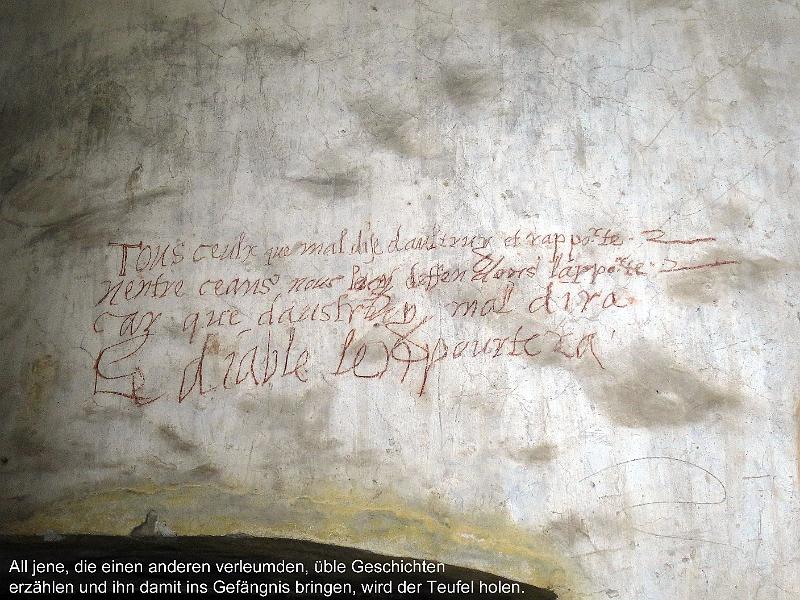 Tous ceulx que mal dise daultruy et rapporte
nentre ceans nous luy deffendons la porte
Car que daultruy mal dira
Le diable le pourtera
All jene, die einen anderen verleumden, üble Geschichten
erzählen und ihn damit ins Gefängnis bringen, wird der Teufel holen.